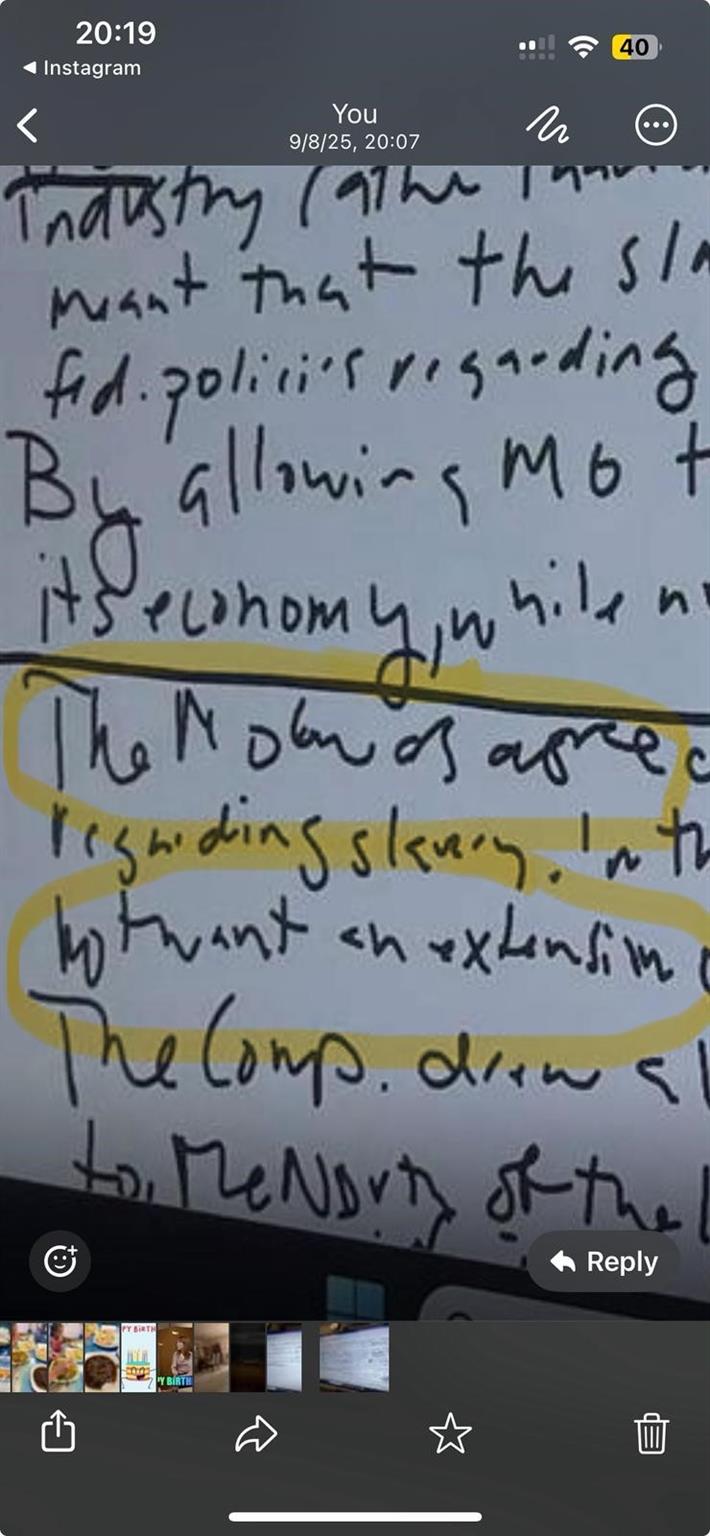 20:19
40
◄ Instagram
You
9/8/25, 20:07
Industry rathe
meant that the sla
fed. policies regarding
By allowing MO t
its economy, while n
The N
agree
regarding slavery. In th
not want an extension
The Comp. drew a l
to, the North of the l
Reply
PY BIRTH
PY BIRTH